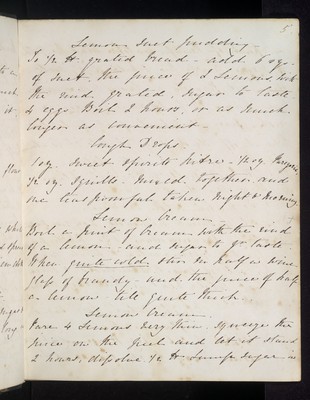 5
Lemon Suet pudding
To ½ lb grated Bread - add 6 ozs.
of Suet, the juice of 2 Lemons, with
the rind grated, Sugar to taste
4 eggs. Boil 2 hours, or as much
longer as convenient -
Cough Drops.
1 oz. Sweet Spirits Nitre - ½ oz.
½ oz. Squills. Mixed together and
one teaspoonful taken Night & Morning
Lemon Cream
Boil a pint of Cream with the rind
of a lemon - and sugar to yr taste.
When quite cold, stir in half a wine
glass of brandy - and the juice of half
a lemon till quite thick
Lemon Cream.
Pare 4 Lemons very thin. Squeeze the
juice on the peel and let it stand
2 hours, dissolve ½ lb Lump sugar in